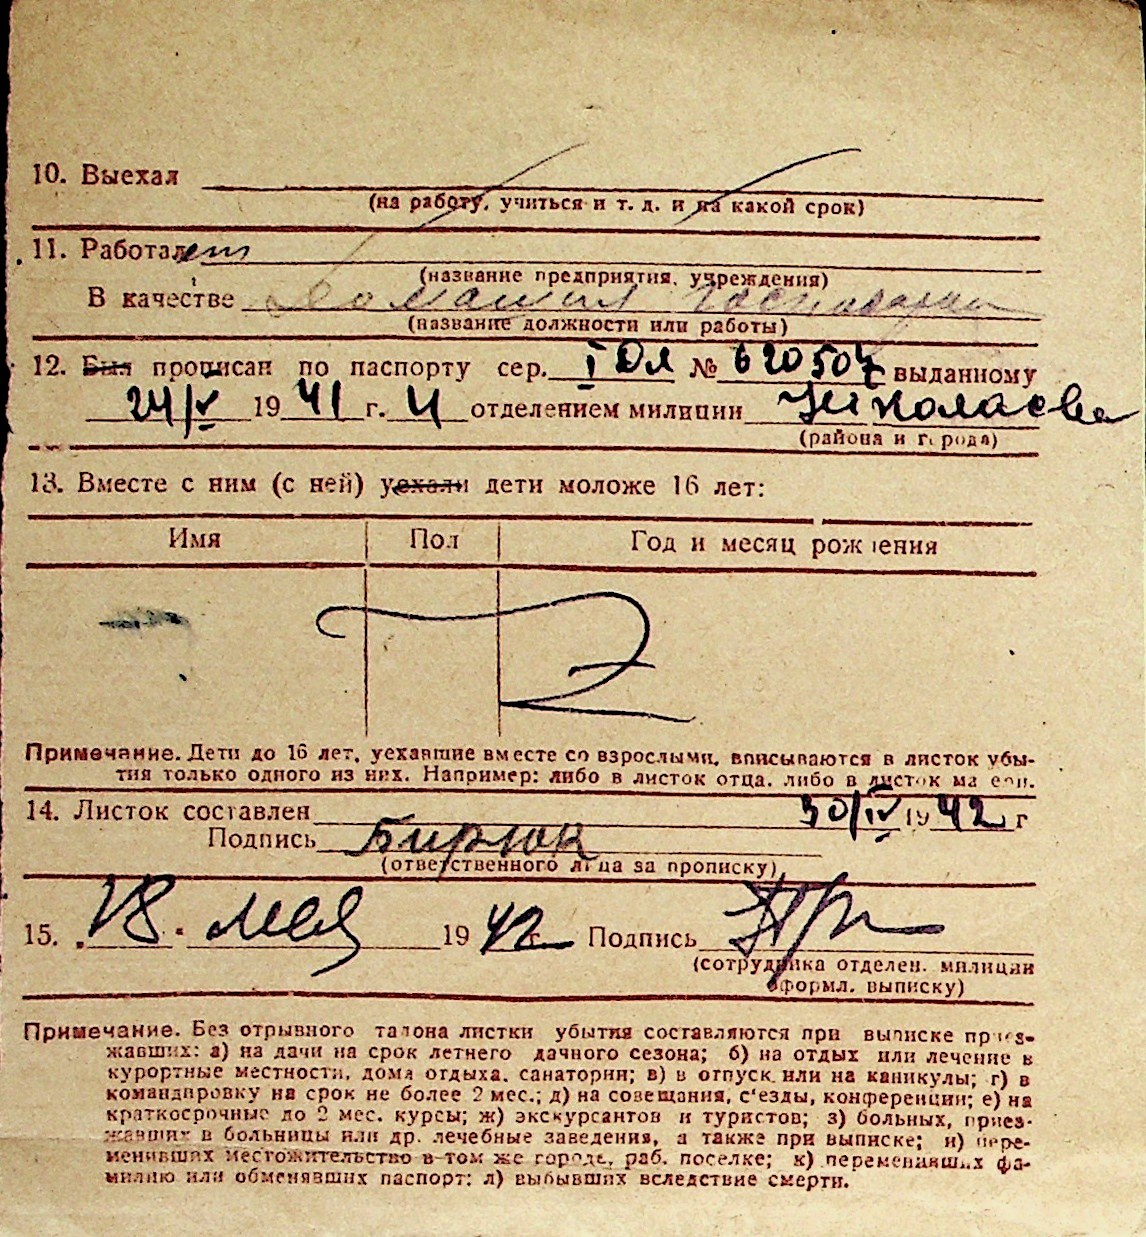 10. Выехал
(на работу, учиться и т. д. и на какой срок)
11. Работает
(название предприятия, учреждения)
В качестве Домашняя
(название должности или работы)
12. Был прописан по паспорту сер. I ОЛ № 620507 выданному
24/V 1941 г. 4 отделением милиции Николаева
(района и города)
13. Вместе с ним (с ней) уехали дети моложе 16 лет:
Имя Пол Год и месяц рождения
Примечание. Дети до 16 лет, уехавшие вместе со взрослыми, вписываются в листок убы-
тия только одного из них. Например: либо в листок отца, либо в листок матери.
14. Листок составлен 30/IV 1942 г
Подпись Бирюк
(ответственного лица за прописку)
15. 18 мая 1942 г. Подпись
(сотрудника отделен. милиции
оформл. выписку)
Примечание. Без отрывного талона листки убытия составляются при выписке приез-
жавших: а) на дачи на срок летнего дачного сезона; б) на отдых или лечение в
курортные местности, дома отдыха, санатории; в) в отпуск или на каникулы; г) в
командировку на срок не более 2 мес.; д) на совещания, с'езды, конференции; е) на
краткосрочные до 2 мес. курсы; ж) экскурсантов и туристов; з) больных, приез-
жавших в больницы или др. лечебные заведения, а также при выписке; и) пере-
менивших местожительство в том же городе, раб. поселке; к) переменивших фа-
милию или обменявших паспорт; л) выбывших вследствие смерти.